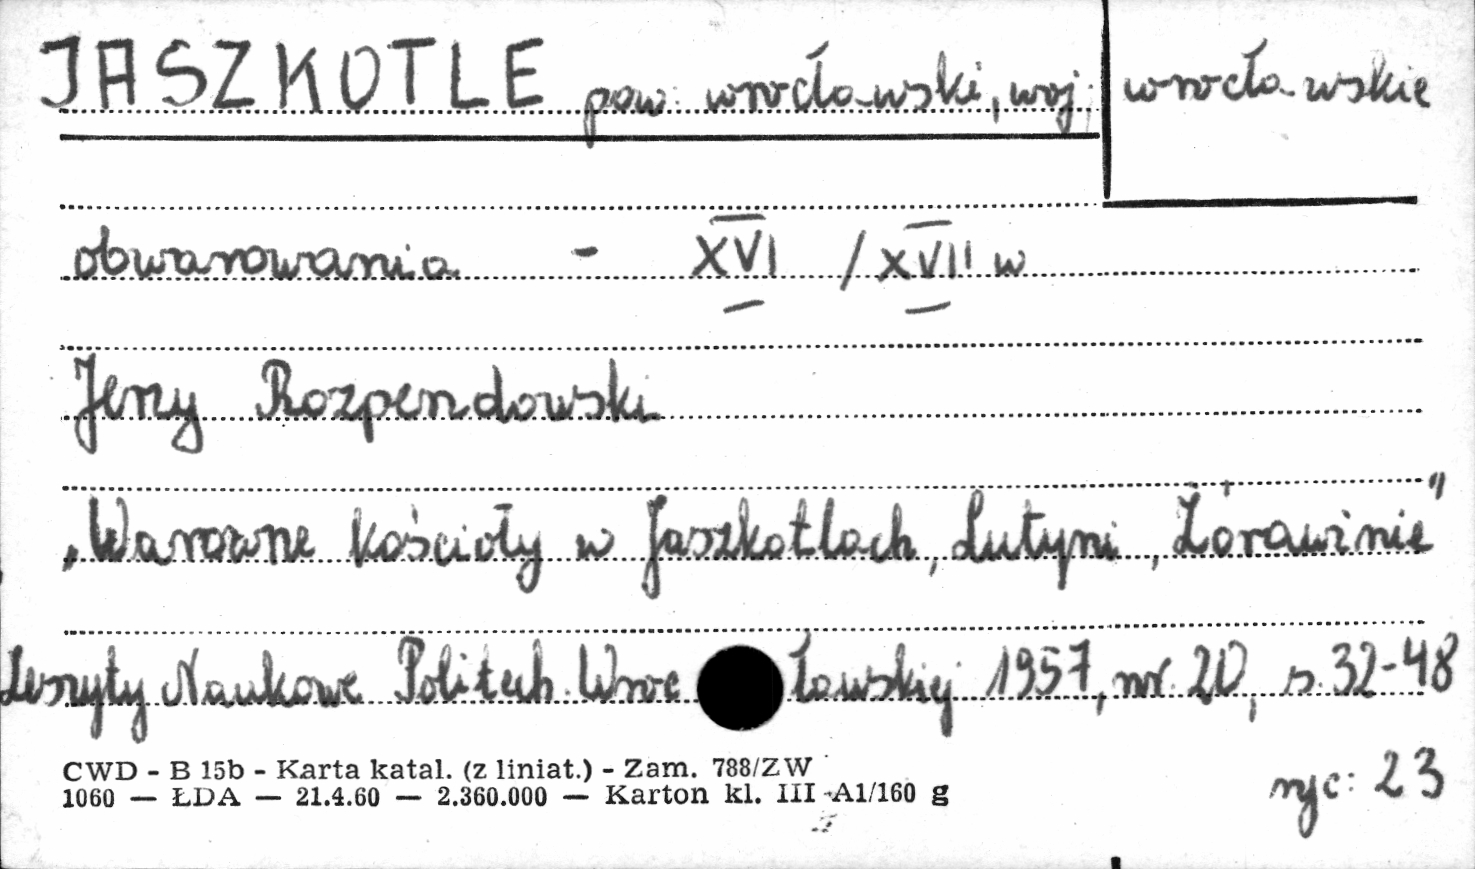 JASZKOTLE pow. wrocławski, woj. wrocławskie
obwarowania - XVI / XVII w
Jerzy Rozpendowski
„Warowne kościoły w Jaszkotlach, Lutyni, Żórawinie"
Zeszyty Naukowe Politech. Wrocławskiej 1957, nr. 20, s. 32-48
ryc: 23
CWD - B 15b - Karta katal. (z liniat.) - Zam. 788/ZW
1060 — ŁDA — 21.4.60 — 2.360.000 — Karton kl. III - A1/160 g